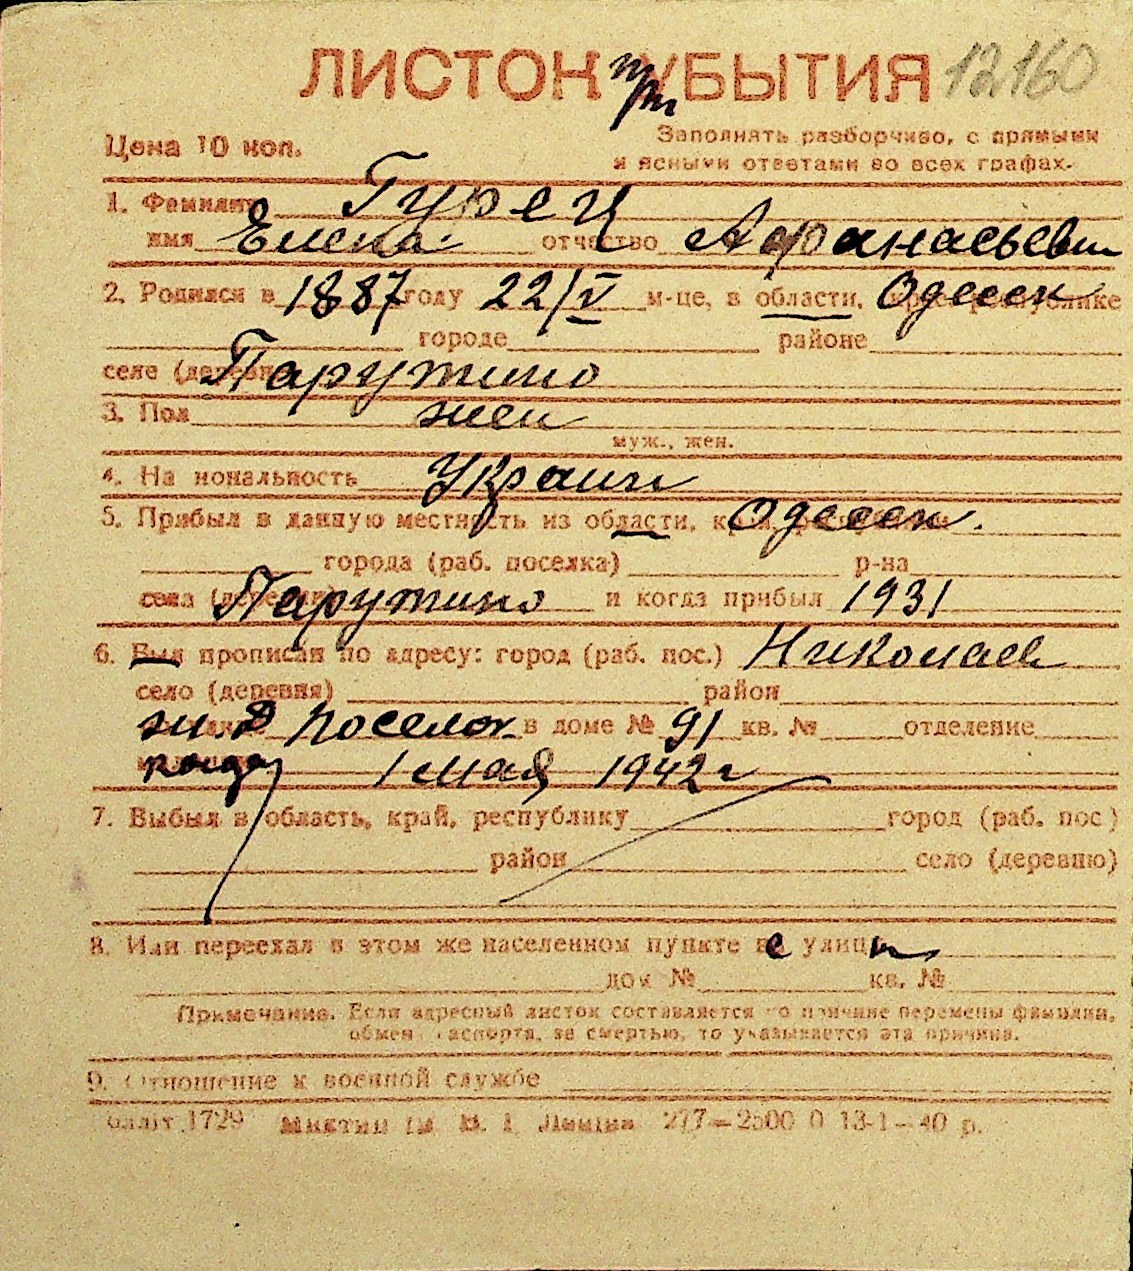 ЛИСТОК при УБЫТИЯ 12160
Цена 10 коп.
Заполнять разборчиво, с прямыми
и ясными ответами во всех графах.
1. Фамилия Гурец
имя Елена отчество Афанасьевн
2. Родился в 1887 году 22/V м-це, в области, Одесск
городе районе
селе Парутино
3. Пол жен
муж., жен.
4. На иональность Украин
5. Прибыл в данную местность из области, Одесск.
города (раб. поселка) р-на
села Парутино и когда прибыл 1931
6. Был прописан по адресу: город (раб. пос.) Николаев
село (деревня) район
ж. д поселок в доме № 91 кв. № отделение
1 мая 1942 г
7. Выбыл в область, край, республику город (раб. пос)
район село (деревню)
8. Или переехал в этом же населенном пункте с улицы
дом № кв. №
Примечание. Если адресный листок составляется по причине перемены фамилии,
обмен паспорта, за смертью, то указывается эта причина.
9. Отношение к военной службе
1729 277—2500 0 13-1—40 р.